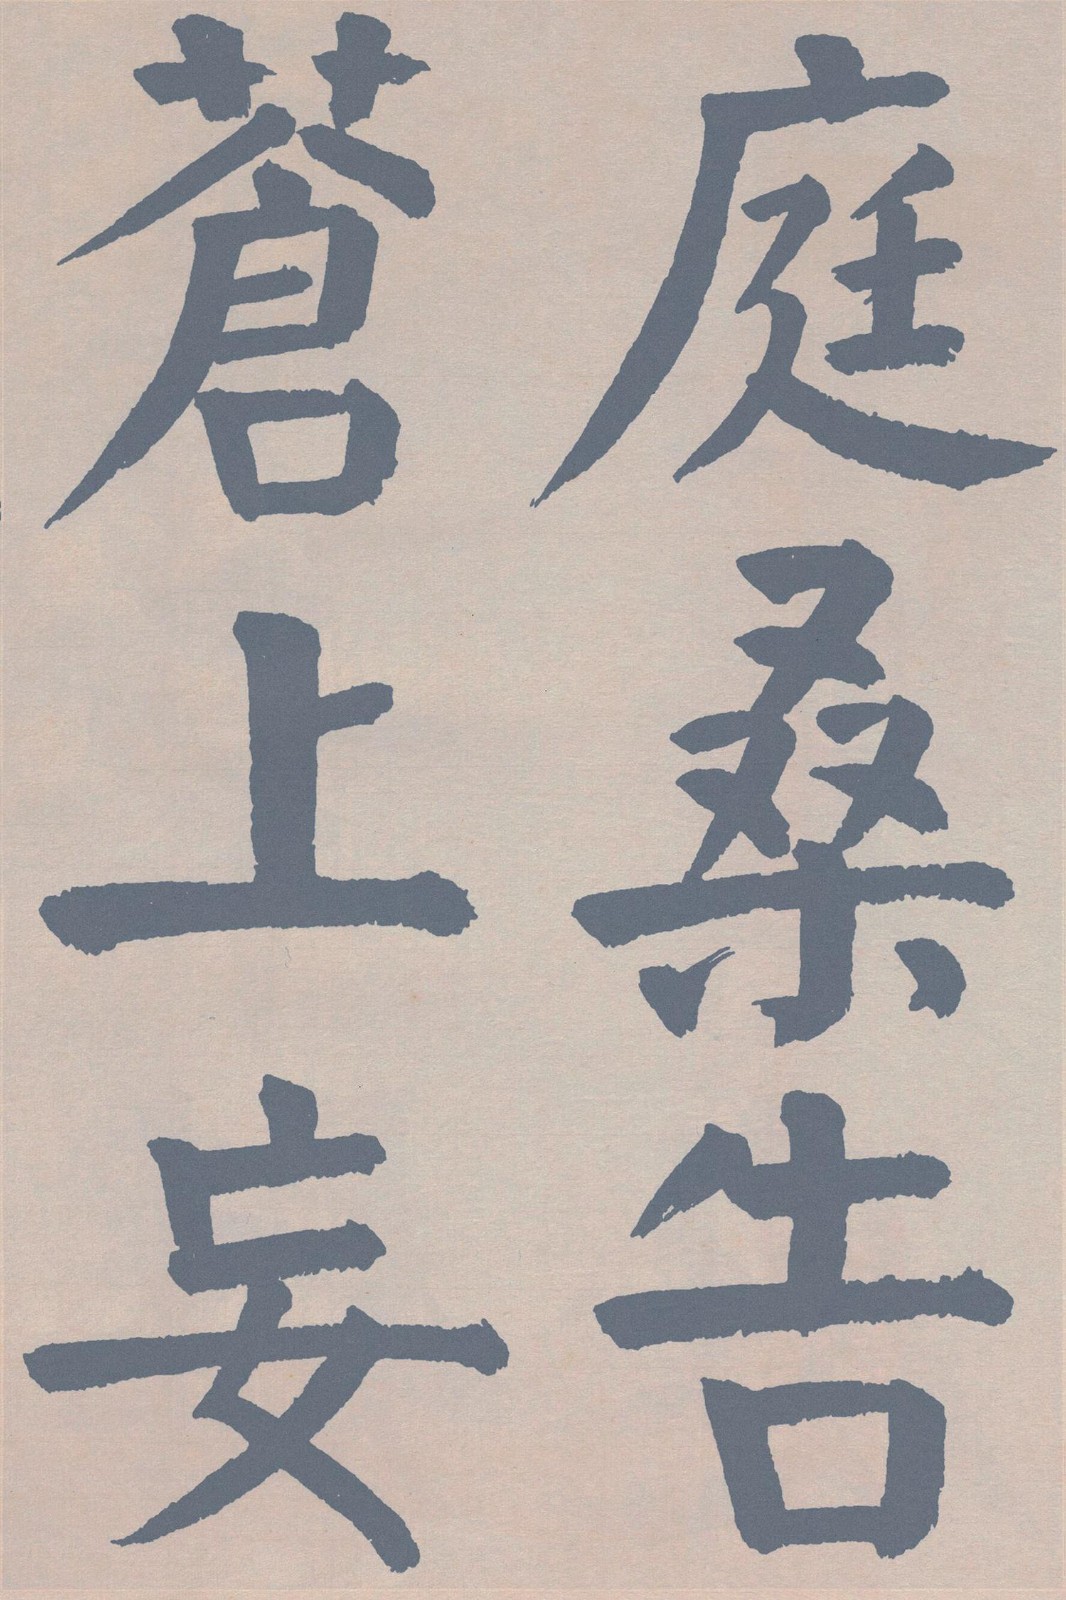 庭桑告
蒼上妄